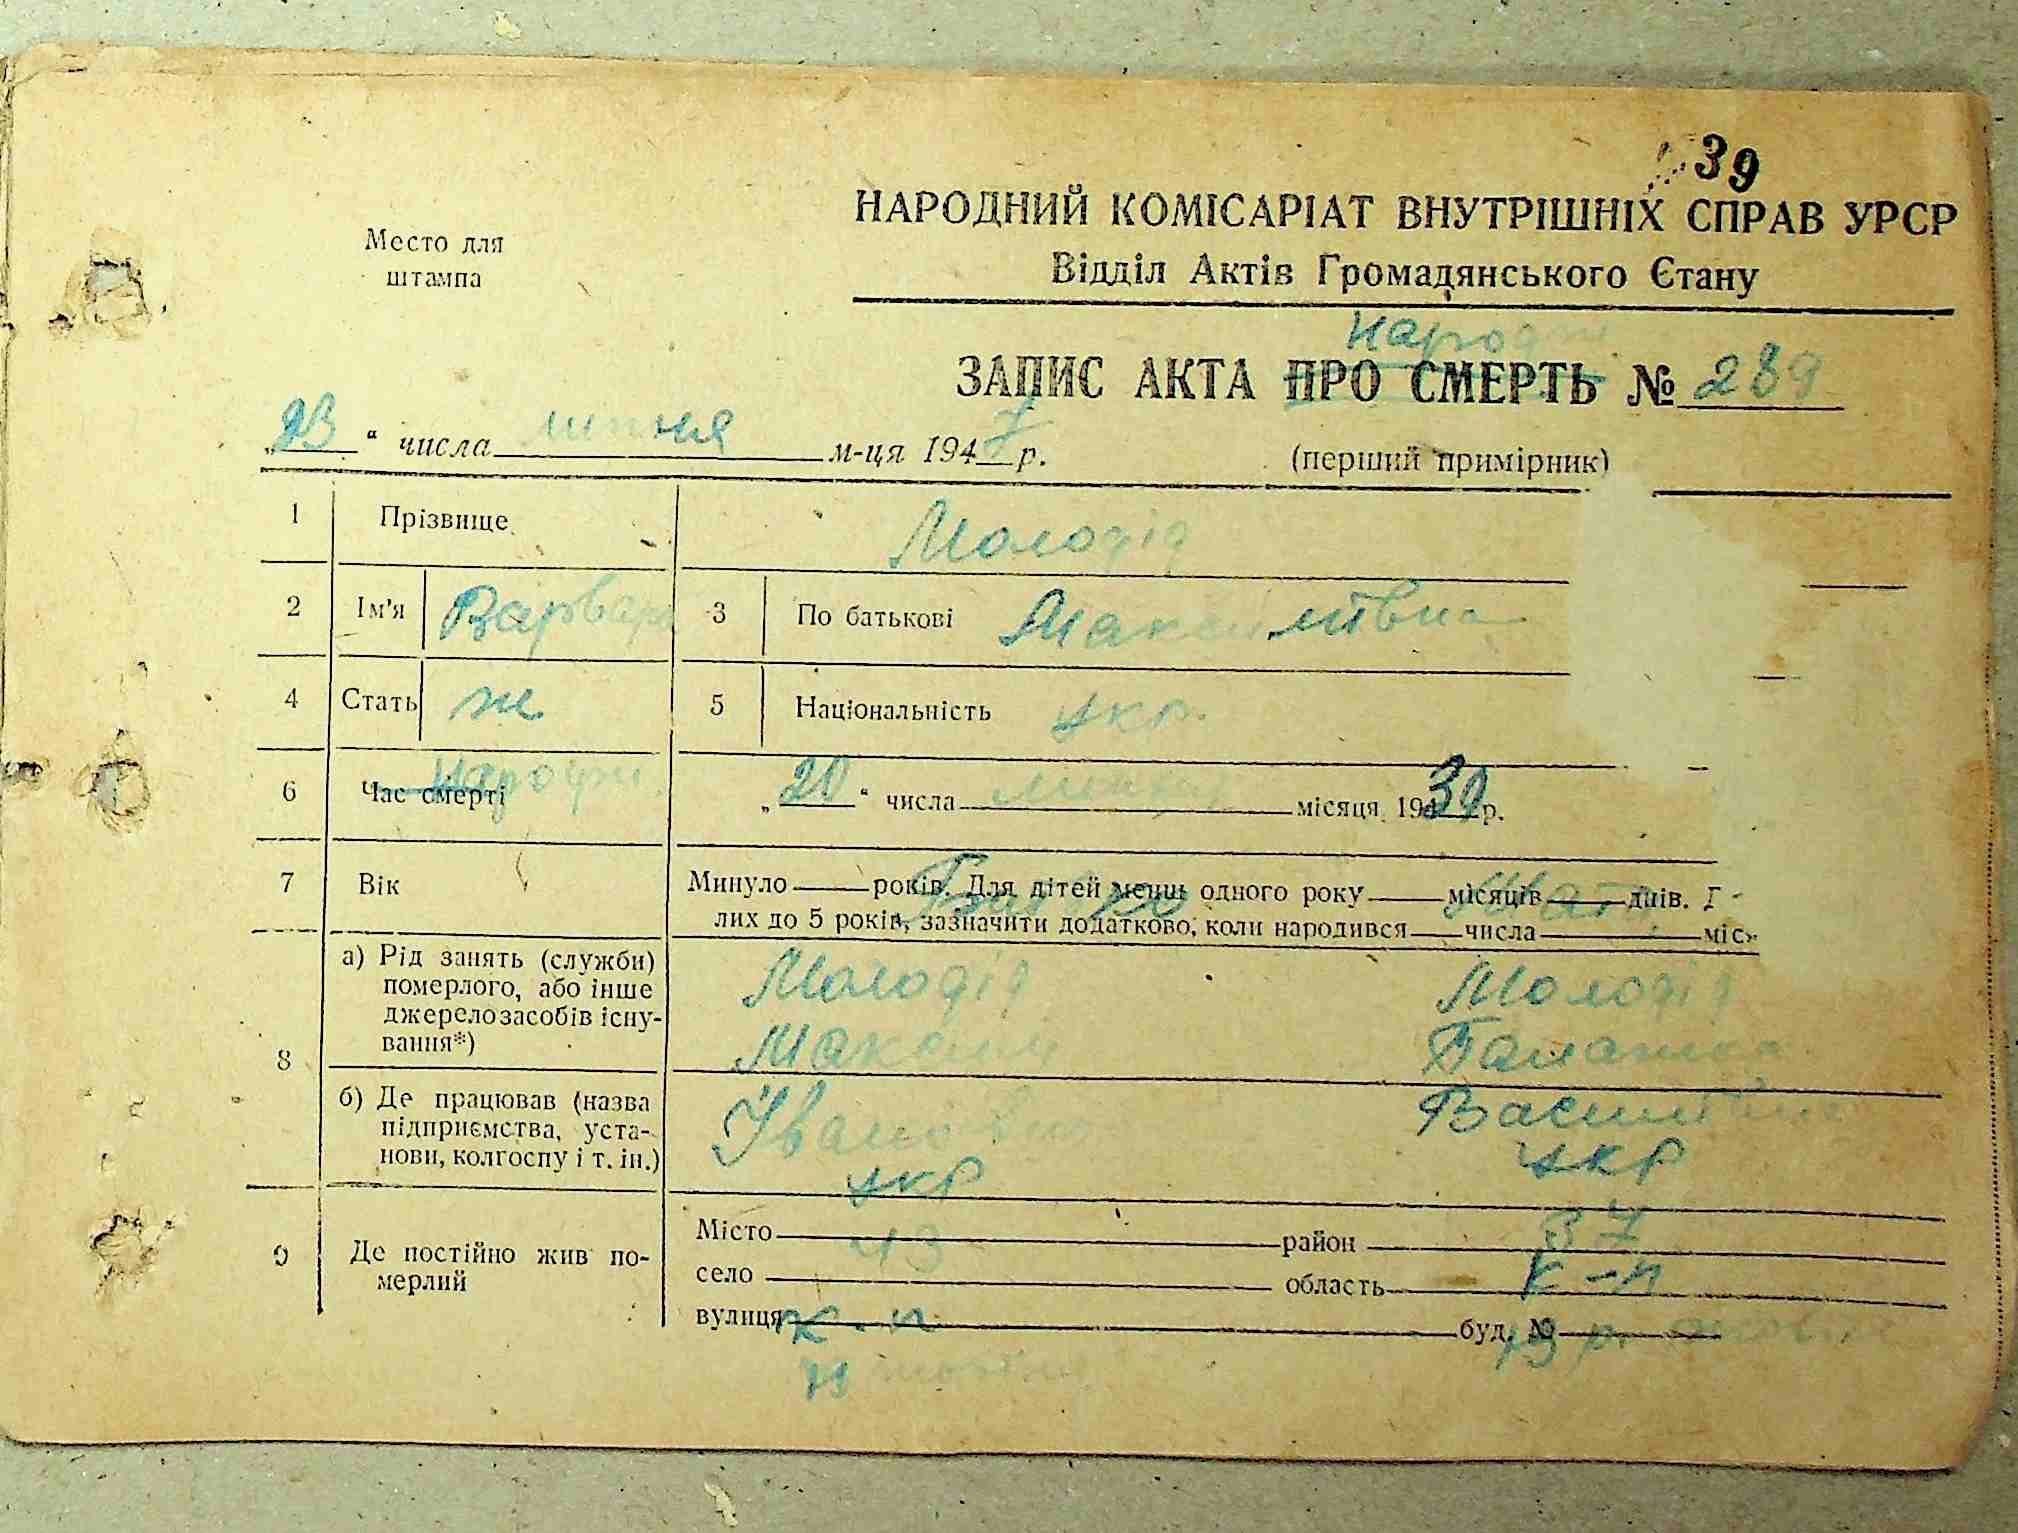 39
НАРОДНИЙ КОМІСАРІАТ ВНУТРІШНІХ СПРАВ УРСР
Відділ Актів Громадянського Єтану
Место для
штампа
народж
ЗАПИС АКТА ПРО СМЕРТЬ № 289
„23“ числа липня м-ця 1947 р.
(перший примірник)
1 Прізвище Молодід
2 Ім'я Варвара 3 По батькові Максимівна
4 Стать ж 5 Національність укр.
6 Час смерті „20“ числа місяця 1939 р.
7 Вік Минуло років. Для дітей менш одного року місяців днів.
лих до 5 років, зазначити додатково, коли народився числа міс
Батько Мати
8 а) Рід занять (служби)
померлого, або інше
джерело засобів існу-
вання*)
Молодід Молодід
Максим
б) Де працював (назва
підприємства, уста-
нови, колгоспу і т. ін.)
Іванов
укр укр
9 Де постійно жив по-
мерлий
Місто 43 район 37
село область к-п
вулиця к-п буд. №